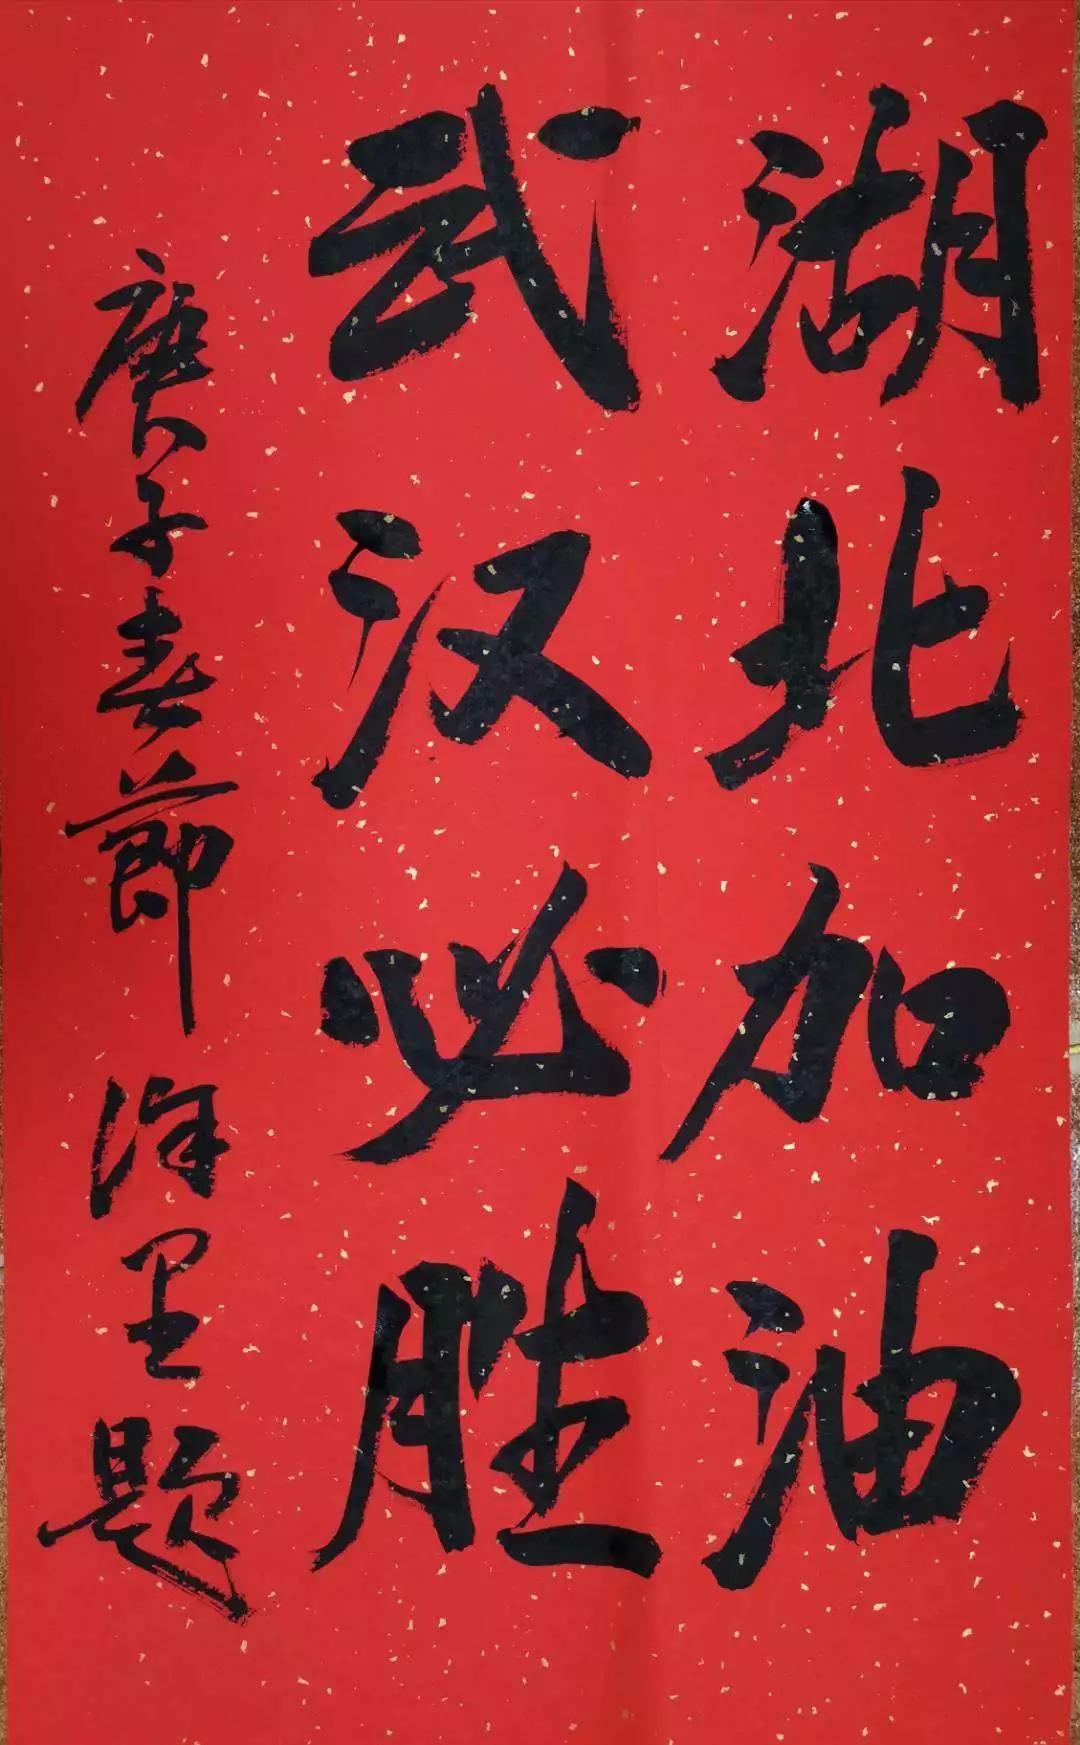 湖北加油
武汉必胜
庚子春節 徐里题